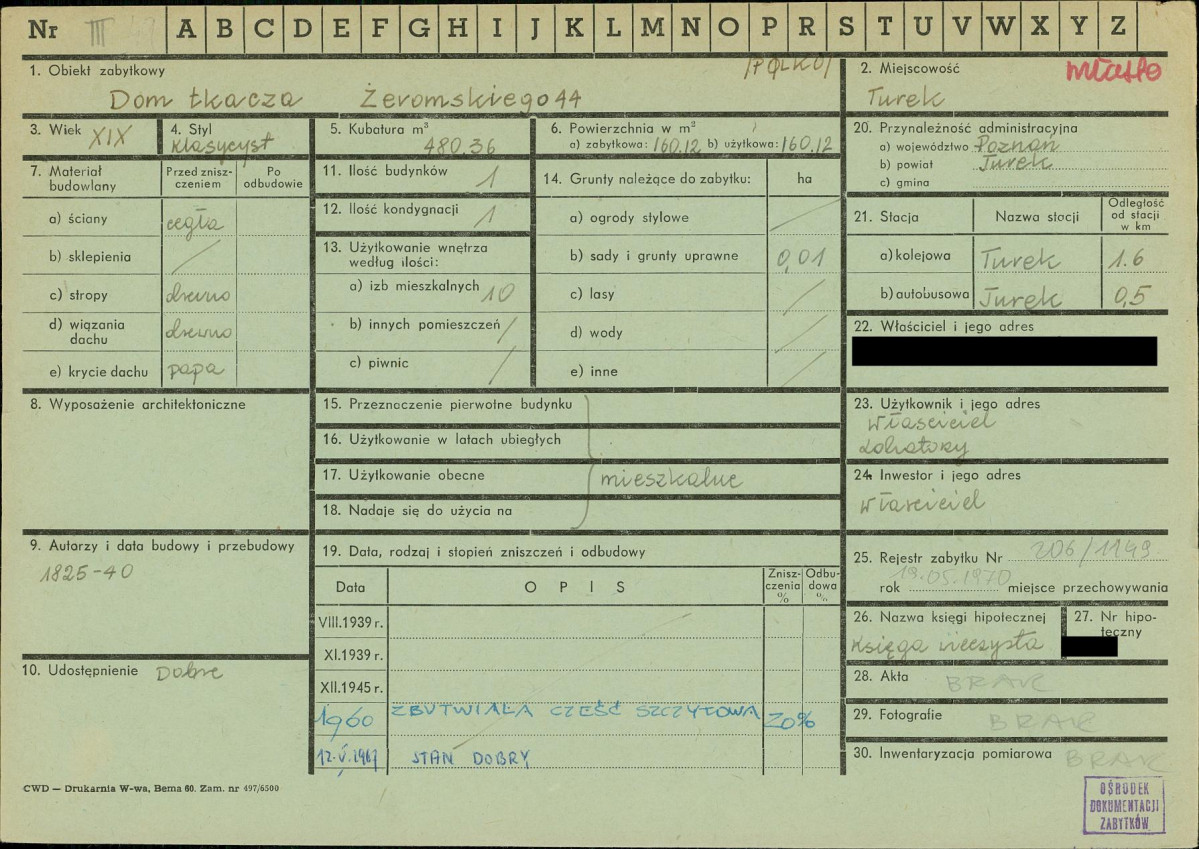 Nr III A B C D E F G H I J K L M N O P R S T U V W X Y Z
1. Obiekt zabytkowy
/POLKO/
Dom tkacza Żeromskiego 44
2. Miejscowość
miasto
Turek
3. Wiek XIX
4. Styl
klasycyst
5. Kubatura m³
480.36
6. Powierzchnia w m²
a) zabytkowa: 160.12 b) użytkowa: 160.12
20. Przynależność administracyjna
a) województwo Poznań
b) powiat Turek
c) gmina
7. Materiał budowlany
Przed zniszczeniem
Po odbudowie
a) ściany cegła
b) sklepienia /
c) stropy drewno
d) wiązania dachu drewno
e) krycie dachu papa
11. Ilość budynków 1
12. Ilość kondygnacji 1
13. Użytkowanie wnętrza według ilości:
a) izb mieszkalnych 10
b) innych pomieszczeń /
c) piwnic /
14. Grunty należące do zabytku: ha
a) ogrody stylowe /
b) sady i grunty uprawne 0,01
c) lasy /
d) wody /
e) inne /
21. Stacja Nazwa stacji Odległość od stacji w km
a) kolejowa Turek 1.6
b) autobusowa Turek 0,5
22. Właściciel i jego adres
8. Wyposażenie architektoniczne
15. Przeznaczenie pierwotne budynku
16. Użytkowanie w latach ubiegłych
17. Użytkowanie obecne mieszkalne
18. Nadaje się do użycia na
23. Użytkownik i jego adres
właściciel
Lokatorzy
24. Inwestor i jego adres
właściciel
9. Autorzy i data budowy i przebudowy
1825-40
19. Data, rodzaj i stopień zniszczeń i odbudowy
Data OPIS Zniszczenia % Odbudowa %
VIII.1939 r.
XI.1939 r.
XII.1945 r.
1960 ZBUTWIAŁA CZĘŚĆ SZCZYTOWA 20%
12.V.1961 STAN DOBRY
25. Rejestr zabytku Nr 206/1149
rok 19.05.1970 miejsce przechowywania
26. Nazwa księgi hipotecznej
Księga wieczysta
27. Nr hipoteczny
28. Akta BRAK
29. Fotografie BRAK
30. Inwentaryzacja pomiarowa BRAK
10. Udostępnienie Dobre
CWD — Drukarnia W-wa, Bema 60. Zam. nr 497/6500
OŚRODEK
DOKUMENTACJI
ZABYTKÓW